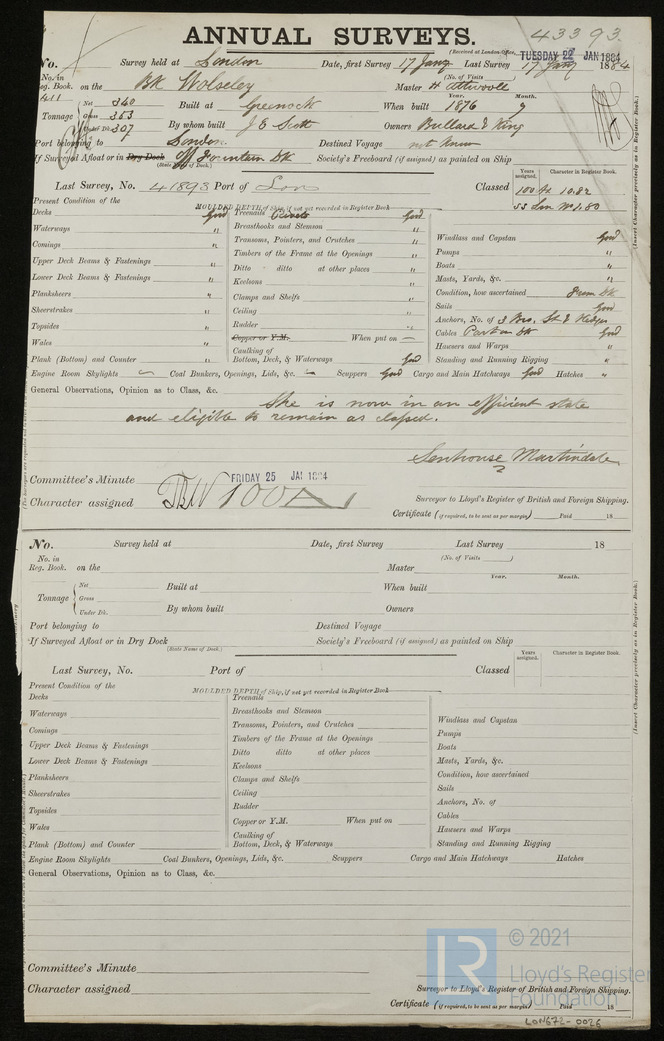 ANNUAL SURVEYS.
43393.
(Received at London Office, TUESDAY 22 JAN 1884
No. Survey held at London Date, first Survey 17 Jany Last Survey 17 Jany 1884
No. in Reg. Book. on the Bk Wolseley (No. of Visits ) Master H Attwooll
411
Tonnage Net 340 Gross 353 Under Dk. 307
Built at Greenock When built Year. 1876 Month. 9
By whom built J E Scott Owners Bullard & King
Port belonging to London Destined Voyage not known
If Surveyed Afloat or in Dry Dock Off Fountain Dk (State Name of Dock.) Society's Freeboard (if assigned) as painted on Ship
Years assigned. Character in Register Book.
Last Survey, No. 41893 Port of Lon Classed 100 A1 10.82
SS Lon No 1.80
(Insert Character precisely as in Register Book.)
Present Condition of the MOULDED DEPTH of Ship, if not yet recorded in Register Book
Decks Good Treenails Rivets Good
Waterways " Breasthooks and Stemson "
Comings " Transoms, Pointers, and Crutches " Windlass and Capstan Good
Upper Deck Beams & Fastenings " Timbers of the Frame at the Openings " Pumps "
Lower Deck Beams & Fastenings " Ditto ditto at other places " Boats "
Keelsons " Masts, Yards, &c. "
Planksheers " Clamps and Shelfs " Condition, how ascertained from Dk
Sheerstrakes " Ceiling " Sails Good
Topsides " Rudder " Anchors, No. of 3 Bro, St & Kedges
Wales " Copper or Y.M. When put on — Cables Part on Dk Good
Caulking of Hawsers and Warps "
Plank (Bottom) and Counter " Bottom, Deck, & Waterways Good Standing and Running Rigging "
Engine Room Skylights — Coal Bunkers, Openings, Lids, &c. — Scuppers Good Cargo and Main Hatchways Good Hatches "
General Observations, Opinion as to Class, &c.
She is now in an efficient state
and eligible to remain as classed.
Senhouse Martindale
Committee's Minute FRIDAY 25 JAN 1884
Character assigned 100A
Surveyor to Lloyd's Register of British and Foreign Shipping.
Certificate (if required, to be sent as per margin) Paid 18
No. Survey held at Date, first Survey Last Survey 18
No. in Reg. Book. on the (No. of Visits ) Master
Tonnage Net Gross Under Dk.
Built at When built Year. Month.
By whom built Owners
Port belonging to Destined Voyage
If Surveyed Afloat or in Dry Dock (State Name of Dock.) Society's Freeboard (if assigned) as painted on Ship
Years assigned. Character in Register Book.
Last Survey, No. Port of Classed
(Insert Character precisely as in Register Book.)
Present Condition of the MOULDED DEPTH of Ship, if not yet recorded in Register Book
Decks Treenails
Waterways Breasthooks and Stemson
Comings Transoms, Pointers, and Crutches Windlass and Capstan
Upper Deck Beams & Fastenings Timbers of the Frame at the Openings Pumps
Lower Deck Beams & Fastenings Ditto ditto at other places Boats
Keelsons Masts, Yards, &c.
Planksheers Clamps and Shelfs Condition, how ascertained
Sheerstrakes Ceiling Sails
Topsides Rudder Anchors, No. of
Wales Copper or Y.M. When put on Cables
Caulking of Hawsers and Warps
Plank (Bottom) and Counter Bottom, Deck, & Waterways Standing and Running Rigging
Engine Room Skylights Coal Bunkers, Openings, Lids, &c. Scuppers Cargo and Main Hatchways Hatches
General Observations, Opinion as to Class, &c.
Committee's Minute
Character assigned
Surveyor to Lloyd's Register of British and Foreign Shipping.
Certificate (if required, to be sent as per margin) Paid 18
LR © 2021
Lloyd's Register
Foundation
LON672-0026